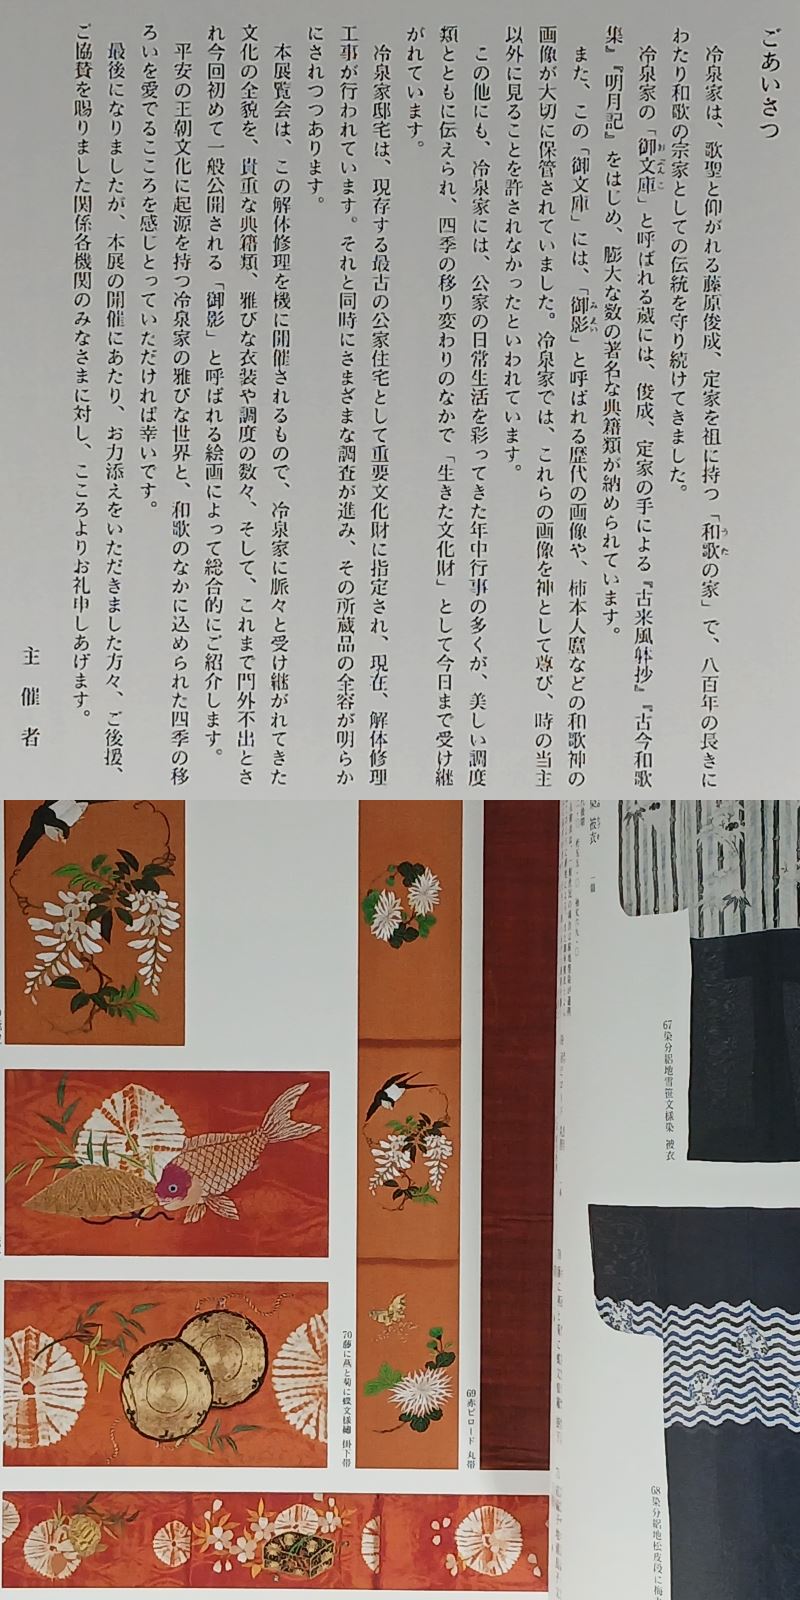 ごあいさつ
冷泉家は、歌聖と仰がれる藤原俊成、定家を祖に持つ「和歌の家」で、八百年の長きに
うた
わたり和歌の宗家としての伝統を守り続けてきました。
冷泉家の「御文庫」と呼ばれる蔵には、俊成、定家の手による『古来風躰抄』『古今和歌
おぶんこ
集』『明月記』をはじめ、膨大な数の著名な典籍類が納められています。
また、この「御文庫」には、「御影」と呼ばれる歴代の画像や、柿本人麿などの和歌神の
みえい
画像が大切に保管されていました。冷泉家では、これらの画像を神として尊び、時の当主
以外に見ることを許されなかったといわれています。
この他にも、冷泉家には、公家の日常生活を彩ってきた年中行事の多くが、美しい調度
類とともに伝えられ、四季の移り変わりのなかで「生きた文化財」として今日まで受け継
がれています。
冷泉家邸宅は、現存する最古の公家住宅として重要文化財に指定され、現在、解体修理
工事が行われています。それと同時にさまざまな調査が進み、その所蔵品の全容が明らか
にされつつあります。
本展覧会は、この解体修理を機に開催されるもので、冷泉家に脈々と受け継がれてきた
文化の全貌を、貴重な典籍類、雅びな衣装や調度の数々、そして、これまで門外不出とさ
れ今回初めて一般公開される「御影」と呼ばれる絵画によって総合的にご紹介します。
平安の王朝文化に起源を持つ冷泉家の雅びな世界と、和歌のなかに込められた四季の移
ろいを愛でるこころを感じとっていただければ幸いです。
最後になりましたが、本展の開催にあたり、お力添えをいただきました方々、ご後援、
ご協賛を賜りました関係各機関のみなさまに対し、こころよりお礼申しあげます。
主催者
67 染分絽地雪笹文様染 被衣
68 染分絽地松皮段に梅
69 赤ビロード 丸帯
70 藤に燕と菊に蝶文様繡 掛下帯